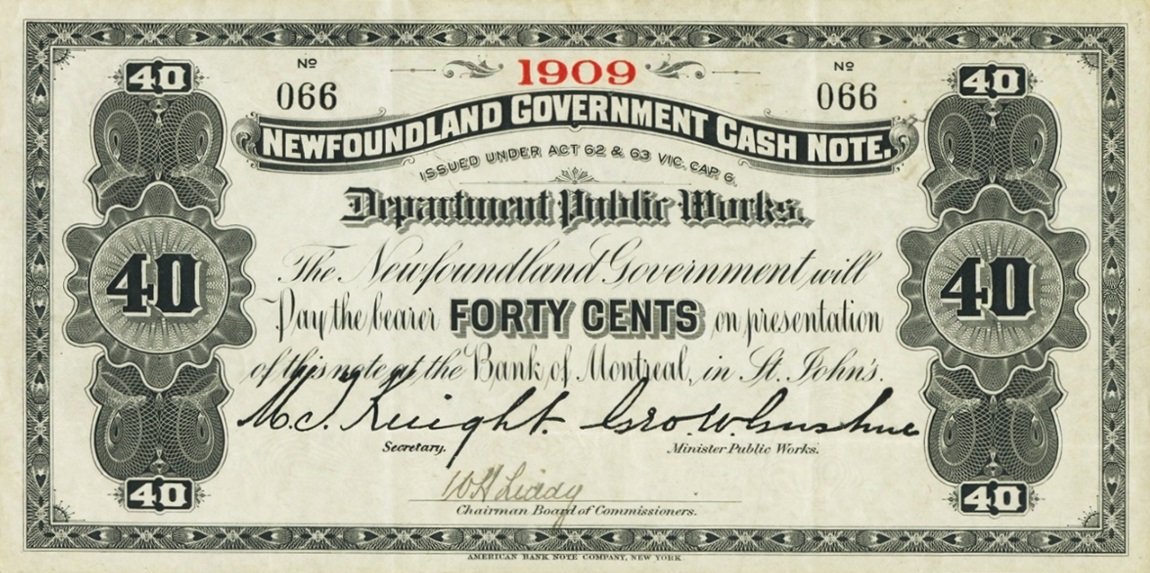 40 Nº 1909 Nº 40
066 066
NEWFOUNDLAND GOVERNMENT CASH NOTE.
ISSUED UNDER ACT 62 & 63 VIC. CAP. 6.
Department Public Works.
The Newfoundland Government will
40 Pay the bearer FORTY CENTS on presentation 40
of this note at the Bank of Montreal, in St. John's.
Knight. Geo. W. Gushue
Secretary. Minister Public Works.
40 40
Chairman Board of Commissioners.
AMERICAN BANK NOTE COMPANY, NEW YORK